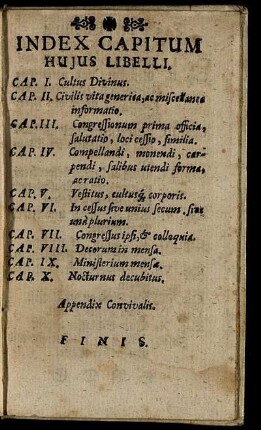 INDEX CAPITUM
HUJUS LIBELLI.
CAP. I. Cultus Divinus.
CAP. II. Civilis vita generica, ac miscellanea
informatio.
CAP. III. Congressionum prima officia,
salutatio, loci cessio, similia.
CAP. IV. Compellandi, monendi, car-
pendi, salibus utendi forma,
ac ratio.
CAP. V. Vestitus, cultusq́; corporis.
CAP. VI. Incessus sive unius secum, sive
und plurium.
CAP. VII. Congressus ipsi, & colloquia.
CAP. VIII. Decorum in mensa.
CAP. IX. Ministerium mensæ.
CAP. X. Nocturnus decubitus.
Appendix Convivalis.
FINIS.